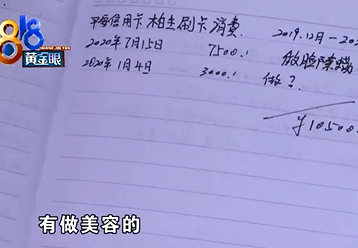 1818
黄金眼
HUANG JIN YAN
平安信用卡 柏圭刷卡消费 2019.12月-202
2020年7月15日 7500.!
2020年1月4日 3000.!
做脸除螨
做?
¥10500
有做美容的